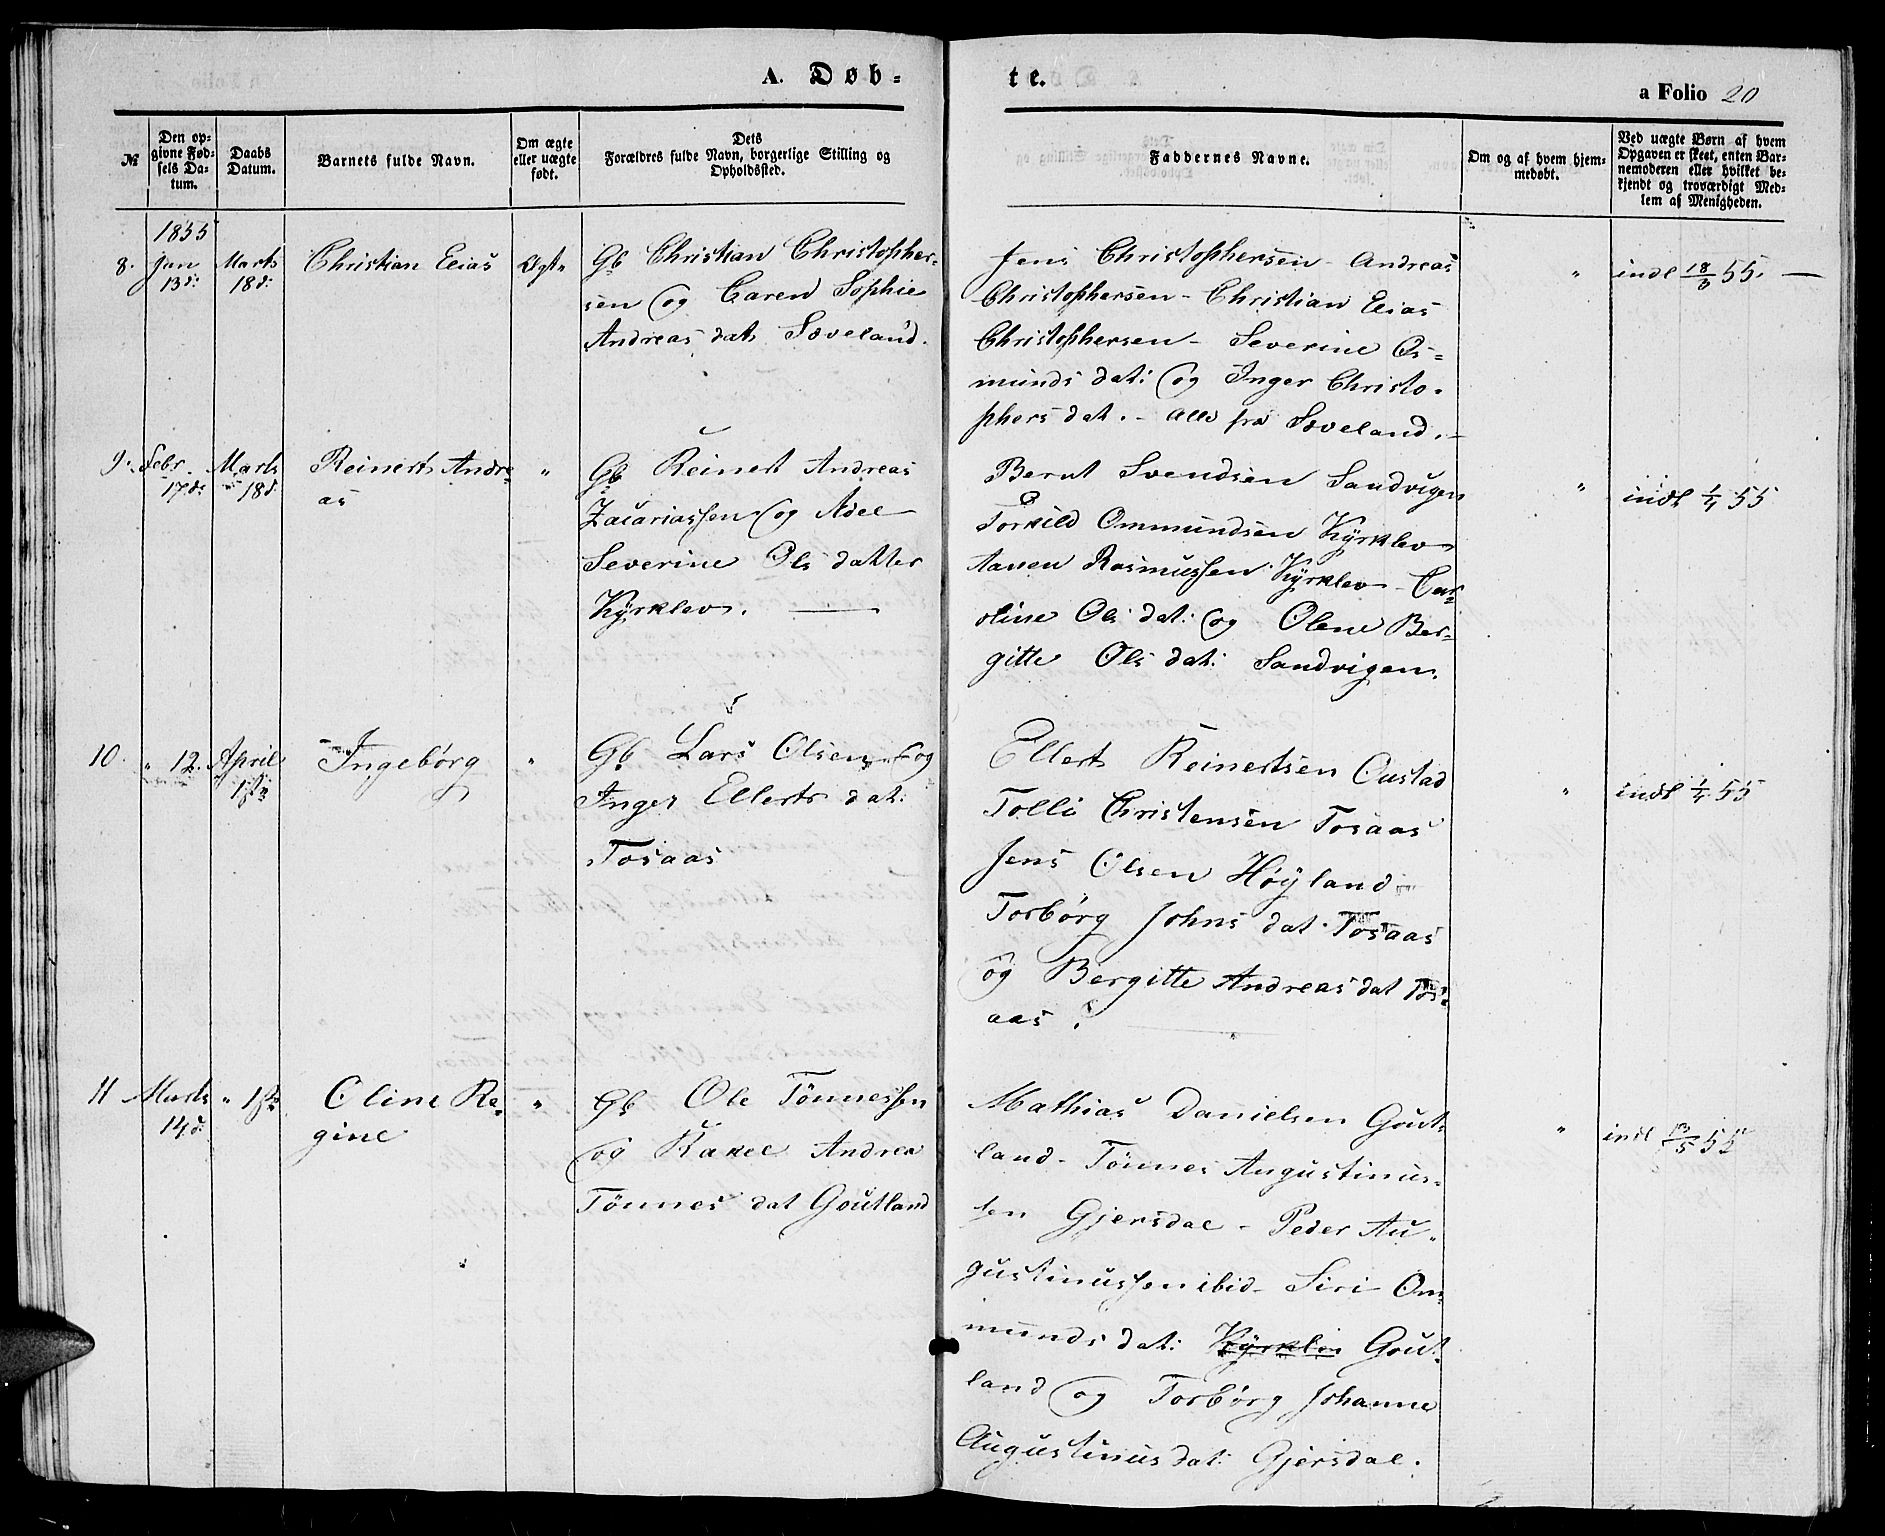 A. Døb-
te.
a Folio 20
№
Den op-
givne Fød-
sels Da-
tum.
Daabs
Datum.
Barnets fulde Navn.
Om ægte
eller uægte
født.
Dets
Forældres fulde Navn, borgerlige Stilling og
Opholdssted.
Faddernes Navne.
Om og af hvem hjem-
medøbt.
Ved uægte Børn af hvem
Opgaven er skeet, enten Bar-
nemoderen eller hvilket be-
kjendt og troværdigt Med-
lem af Menigheden.
1855
8.
Jan
13d:
Marts
18d:
Christian Elias
Ægt.
Gb Christian Christopher-
sen og Caren Sophie
Andreasdat. Søveland.
Jens Christophersen - Andreas
Christophersen - Christian Elias
Christophersen - Severine Os-
munds dat: og Inger Christo-
phersdat. - alle fra Søveland. -
"
indl 18/3 55. —
9.
Febr.
17.d:
Marts
18d.
Reinert Andre-
as
"
Gb Reinert Andreas
Zacariassen og Adel
Severine Olsdatter
Kyrklev. —
Bernt Svendsen Sandvigen
Torkild Ommundsen Kyrklev
Aanen Rasmussen Kyrklev - Car-
oline Ols dat: og Olene Ber-
gitte Ols dat: Sandvigen.
"
indl 1/4 55
10.
" 12.
April
1ste
Ingebørg
"
Gb Lars Olsen og
Inger Ellerts dat:
Tosaas
Ellert Reinertsen Oustad
Tolli Christensen Tosaas
Jens Olsen Høyland
Torbørg Johns dat. Tosaas
og Bergitte Andreasdat Tos-
aas.
"
indl 1/4 55
11
Marts
14.d:
" 1ste
Oline Re-
gine
"
Gb Ole Tønnessen
og Rakel Andrea
Tønnes dat Goutland
Mathias Danielsen Gout-
land - Tønnes Augustinus-
sen Gjersdal - Peder Au-
gustinussen ibid - Siri Om-
munds dat: Kyrkli Gout-
land og Torbørg Johanne
Augustinusdat: Gjersdal.
"
indl 13/5 55